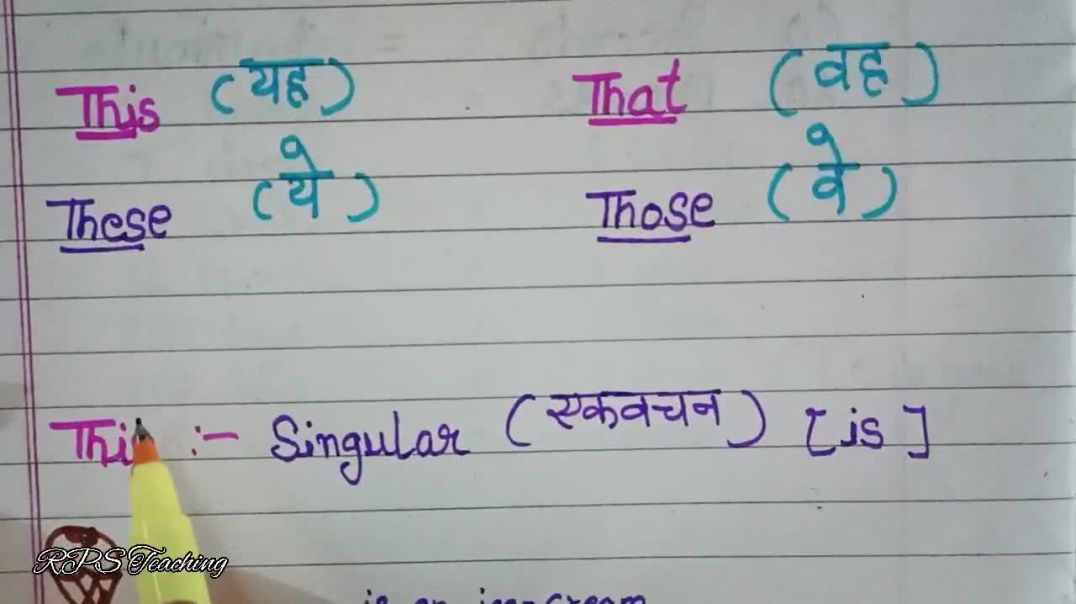 This (यह) That (वह)
These (ये) Those (वे)
Thi :- Singular (एकवचन) [is]
RPS Teaching
is an ice-cream